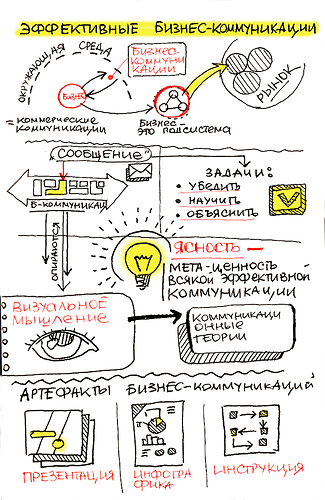 ЭФФЕКТИВНЫЕ БИЗНЕС-КОММУНИКАЦИИ
ОКРУЖАЮЩАЯ СРЕДА
БИЗНЕС-
КОММУНИ
КАЦИИ
БИЗНЕС
РЫНОК
= КОММЕРЧЕСКИЕ
КОММУНИКАЦИИ
БИЗНЕС-
ЭТО ПОДСИСТЕМА
"СООБЩЕНИЕ"
Б-КОММУНИКАЦ
ОПИРАЮТСЯ
ЗАДАЧИ:
• УБЕДИТЬ
• НАУЧИТЬ
• ОБЪЯСНИТЬ
ЯСНОСТЬ —
МЕТА-ЦЕННОСТЬ
ВСЯКОЙ ЭФФЕКТИВНОЙ
КОММУНИКАЦИИ
ВИЗУАЛЬНОЕ
МЫШЛЕНИЕ
КОММУНИКАЦИ
ОННЫЕ
ТЕОРИИ
АРТЕФАКТЫ БИЗНЕС-КОММУНИКАЦИЙ
ПРЕЗЕНТАЦИЯ
ИНФОГРА
ФИКА
ИНСТРУКЦИЯ